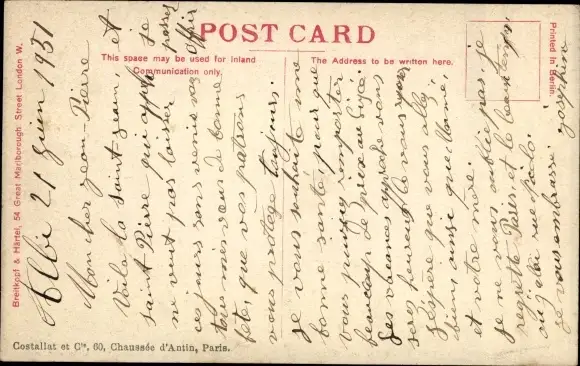 POST CARD
This space may be used for Inland
Communication only.
The Address to be written here.
Printed in Berlin.
Breitkopf & Härtel, 54 Great Marlborough Street London W.
Albi 21 juin 1931
Mon cher Jean-Pierre
Voila la Saint-Jean, et
Saint Pierre qui app je
ne veut pas laisser passer
ces jours sans venir vous
tous mes vœux de bonne
fête, que vos patrons
vous protège toujours.
je vous souhaite une
bonne santé, pour que
vous puissiez remporter
beaucoup de prix au Lycée.
Les vacances approche vous
serez heureux
J'espère que vous allez
bien, ainsi que Mame,
et votre mère.
je ne vous oublie pas, je
regrette Paris, et le beau temps
ou j'étai rue
je vous embrasse. Joséphine
Costallat et Cie. 60, Chaussée d'Antin, Paris.